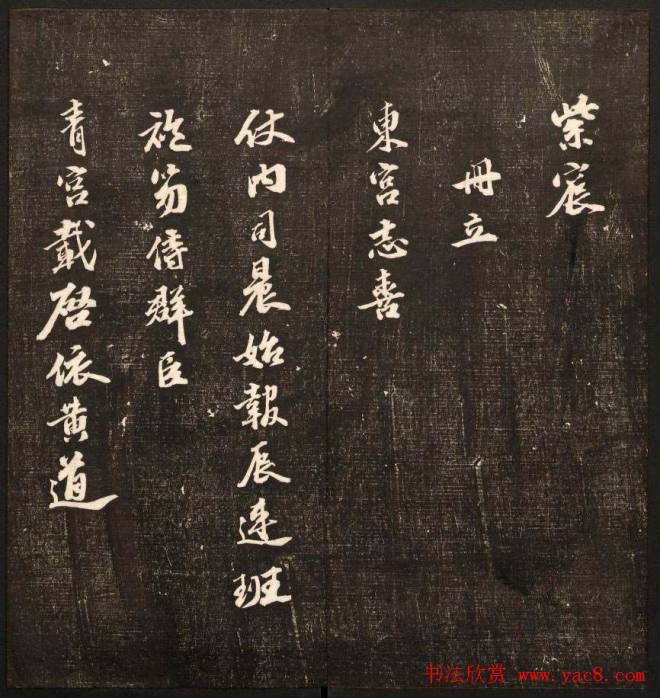 紫宸
冊立
東宮志喜
仗內司晨始報辰連班
袍笏侍群臣
青宮載啓依黃道
书法欣赏 www.yac8.com